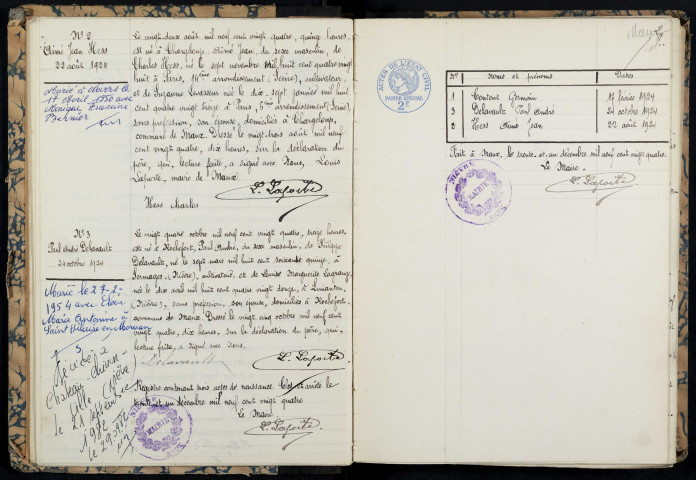 Nº 2
Aimé Jean Hess
22 août 1924
Marié à Nevers le
17 Avril 1950 avec
Monique
Le vingt-deux août mil neuf cent vingt quatre, quinze heures,
est né à Chargeloup Aimé Jean, du sexe masculin, de
Charles Hess, né le sept novembre mil huit cent quatre vingt
huit à Paris, 14ème arrondissement (Seine), cultivateur,
et de Suzanne Levasseur née le dix, sept janvier mil huit
cent quatre vingt treize à Paris, 5ème arrondissement (Seine),
sans profession, son épouse, domiciliés à Chargeloup,
commune de Maux. Dressé le vingt-trois août mil neuf
cent vingt quatre, dix heures, sur la déclaration du
père, qui, lecture faite, a signé avec Nous, Louis
Laporte, maire de Maux.
L. Laporte
Hess Charles
Nº 3
Paul André Delavault
24 octobre 1924
Marié le 27-2-
1954 avec
Marie Antonine à
Saint Hilaire en Morvan
Décédé à
Château-Chinon-
Ville (Nièvre)
le 21 septembre
1982
le 29.9.1982
Le vingt quatre octobre mil neuf cent vingt quatre, treize heures
est né à Rochefort, Paul André, du sexe masculin, de Philippe
Delavault, né le sept mars mil huit cent soixante quinze, à
Sermages, (Nièvre), cultivateur, et de Louise Marguerite Lagrange,
née le dix avril mil huit cent quatre vingt douze, à Limanton,
(Nièvre), sans profession, son épouse, domiciliés à Rochefort,
commune de Maux. Dressé le vingt cinq octobre mil neuf cent
vingt quatre, dix heures, sur la déclaration du père, qui,
lecture faite, a signé avec Nous,
Delavault
L. Laporte
Registre contenant trois actes de naissance. Clos et arrêté le
trente et un décembre mil neuf cent vingt quatre
Le Maire
L. Laporte
MAIRIE
ACTES DE L'ÉTAT CIVIL
PAPIER SPÉCIAL
2F
Nos Noms et prénoms Dates
1 Contant Germain 17 février 1924
3 Delavault Paul André 24 octobre 1924
2 Hess Aimé Jean 22 août 1924
Fait à Maux, le trente et un décembre mil neuf cent vingt quatre
Le Maire
L. Laporte
NIÈVRE
MAIRIE